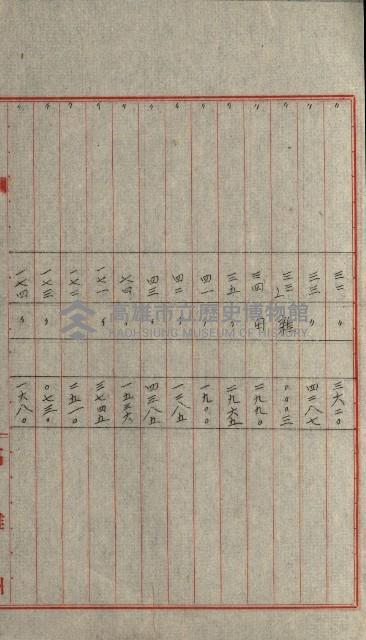 〃 三二 〃 三六二〇
〃 三三 〃 四二八七
〃 三三ノ二 雜 〇〇〇三
〃 三四 田 二九九〇
〃 三五 〃 二九六五
〃 四一 〃 一九〇〇
〃 四二 〃 一二八五
〃 四三 〃 四三八五
〃 七四 〃 一五三六
〃 一七一 〃 三七四五
〃 一七二 〃 二五一〇
〃 一七三 〃 〇七三〇
〃 一七四 〃 一六八〇
高雄市立歷史博物館
KAOHSIUNG MUSEUM OF HISTORY
高雄州